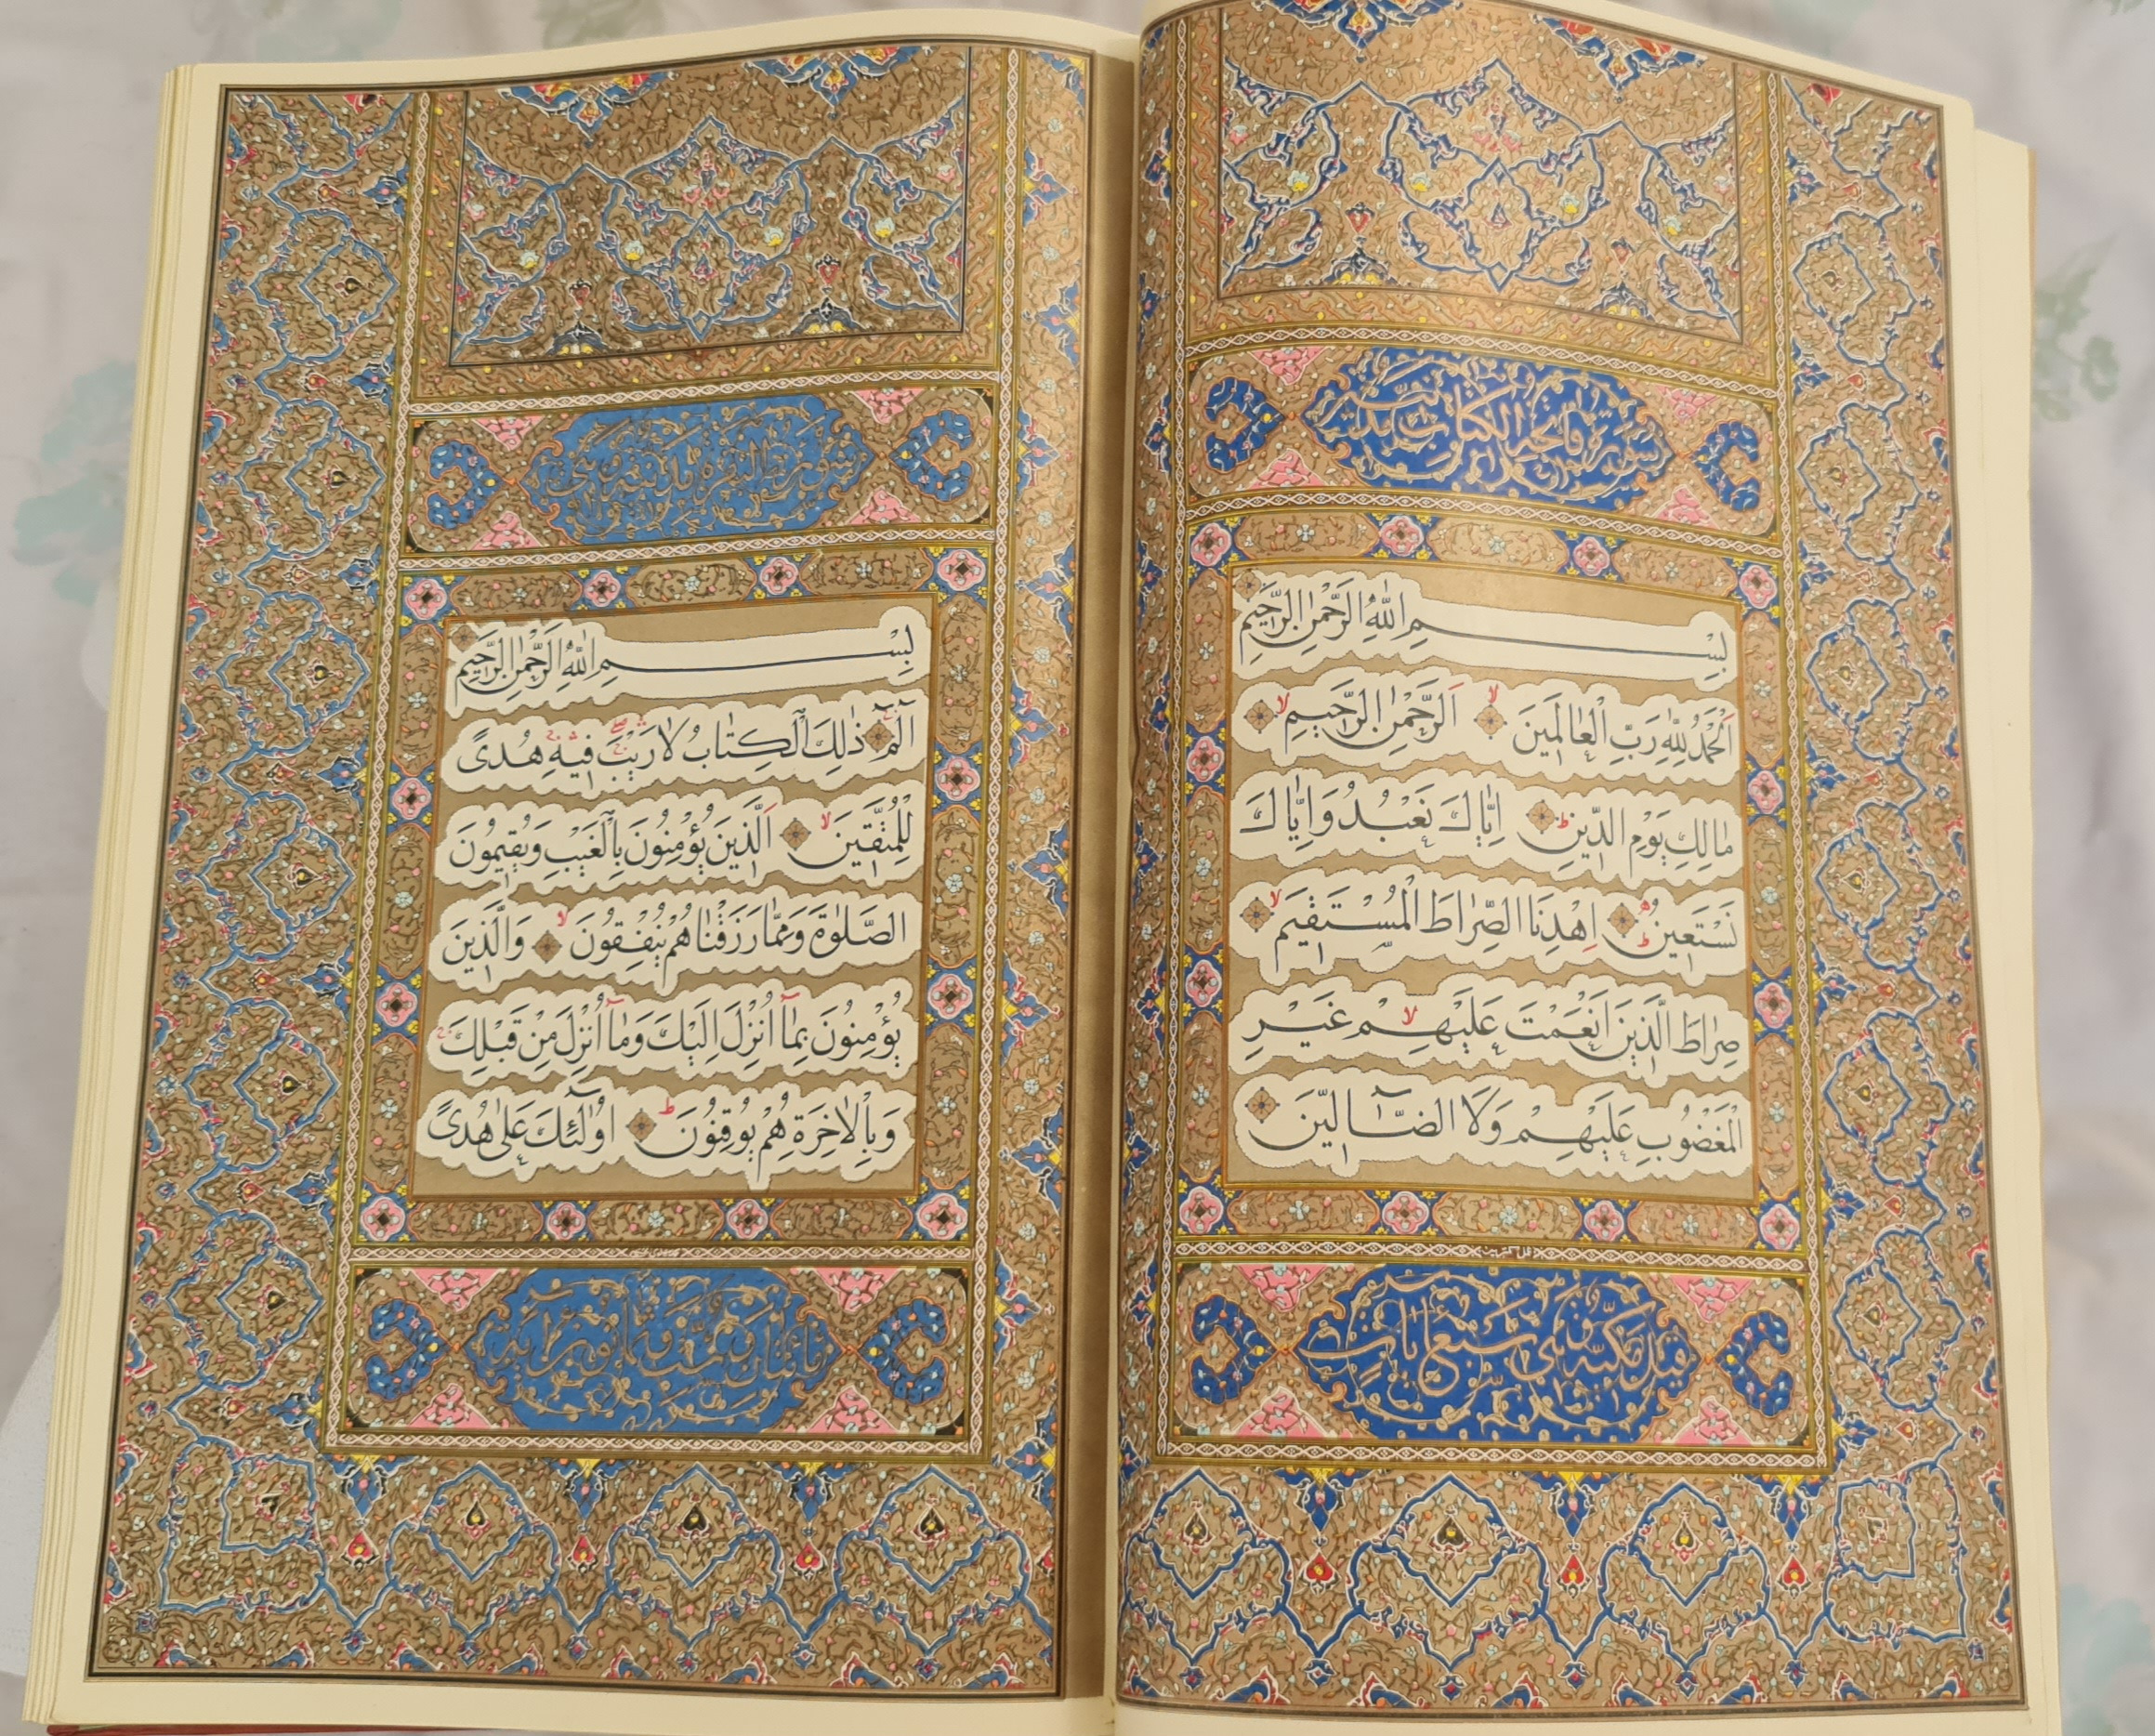 بِسْمِ اللّٰهِ الرَّحْمٰنِ الرَّحِيمِ
اَلْحَمْدُ لِلّٰهِ رَبِّ الْعَالَمِينَ لا اَلرَّحْمٰنِ الرَّحِيمِ لا
مَالِكِ يَوْمِ الدِّينِ ط اِيَّاكَ نَعْبُدُ وَاِيَّاكَ
نَسْتَعِينُ ط اِهْدِنَا الصِّرَاطَ الْمُسْتَقِيمَ لا
صِرَاطَ الَّذِينَ اَنْعَمْتَ عَلَيْهِمْ لا غَيْرِ
الْمَغْضُوبِ عَلَيْهِمْ وَلَا الضَّآلِّينَ
بِسْمِ اللّٰهِ الرَّحْمٰنِ الرَّحِيمِ
الٓمٓ ذٰلِكَ الْكِتَابُ لَا رَيْبَ فِيهِ هُدًى
لِلْمُتَّقِينَ لا اَلَّذِينَ يُؤْمِنُونَ بِالْغَيْبِ وَيُقِيمُونَ
الصَّلٰوةَ وَمِمَّا رَزَقْنَاهُمْ يُنْفِقُونَ لا وَالَّذِينَ
يُؤْمِنُونَ بِمَآ اُنْزِلَ اِلَيْكَ وَمَآ اُنْزِلَ مِنْ قَبْلِكَ
وَبِالْاٰخِرَةِ هُمْ يُوقِنُونَ ط اُولٰٓئِكَ عَلٰى هُدًى